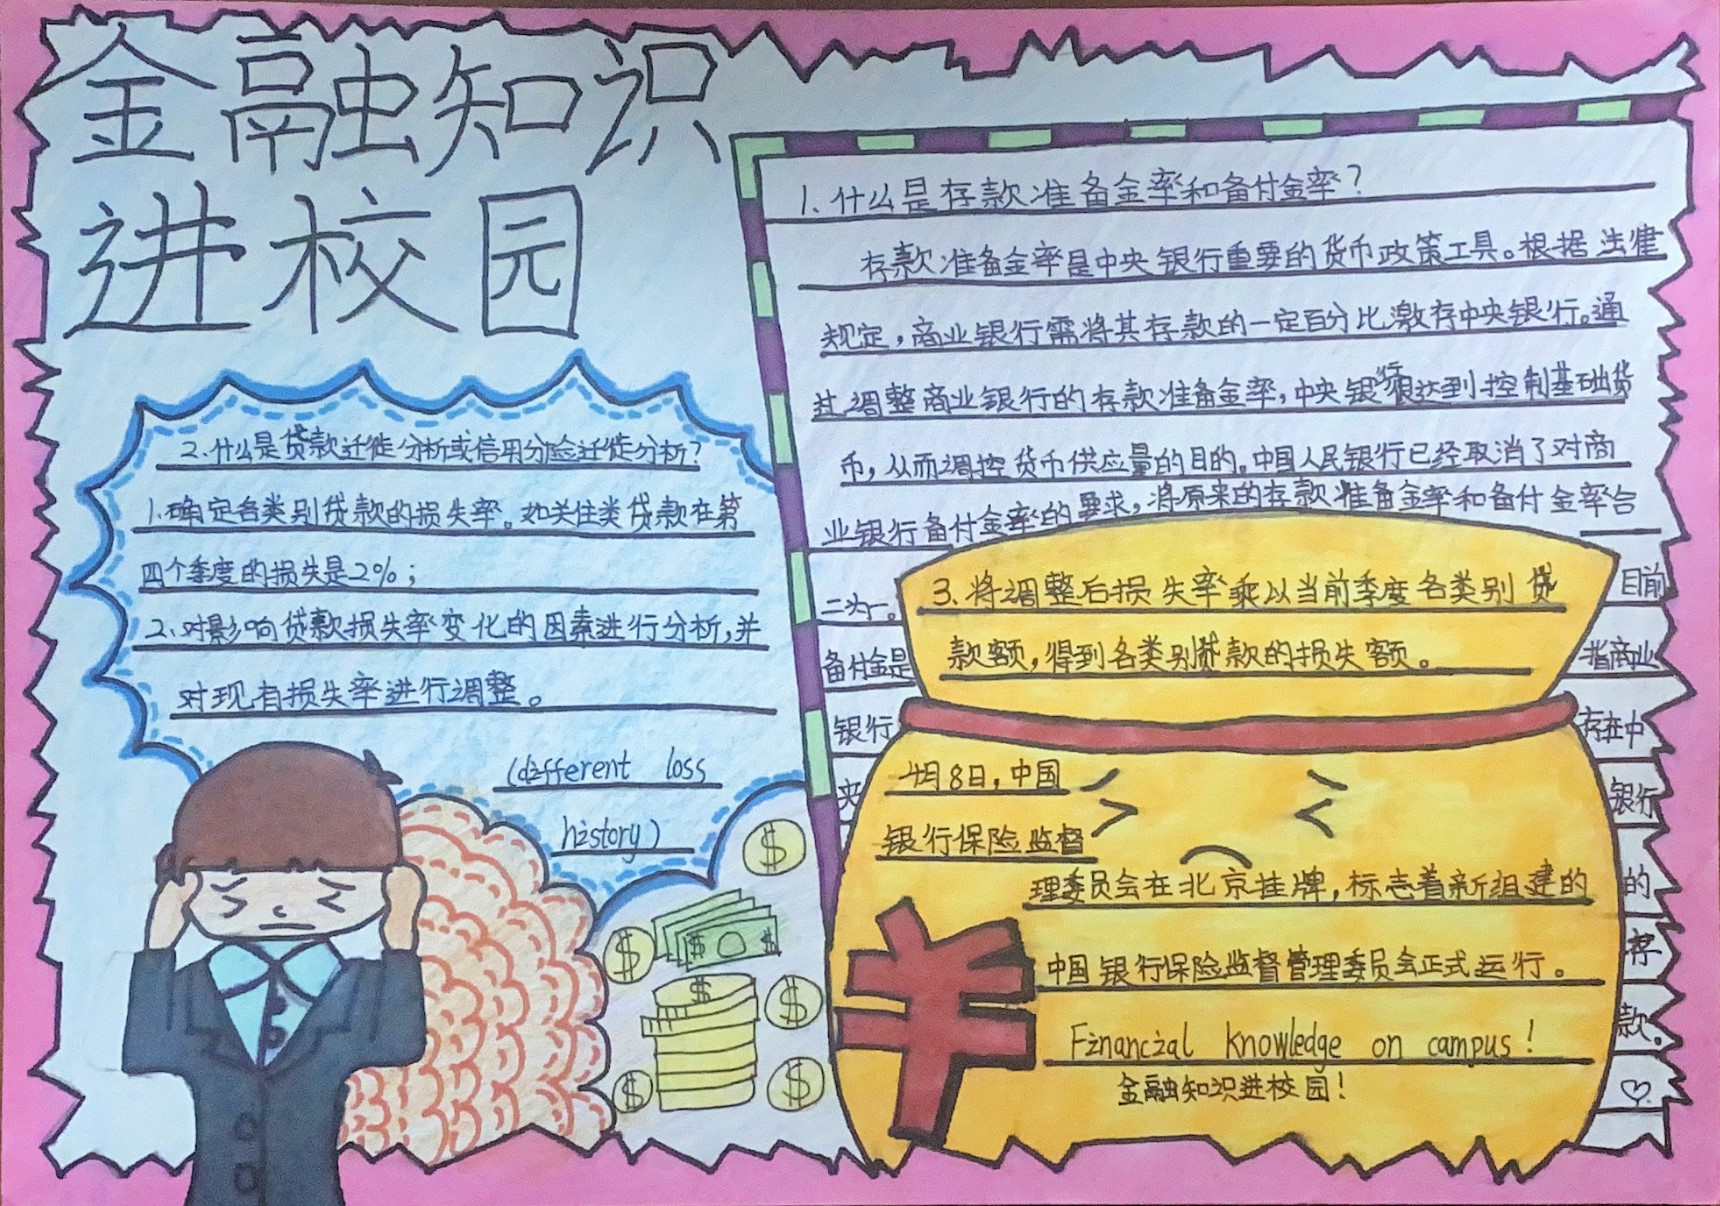 金融知识
进校园
1.什么是存款准备金率和备付金率？
存款准备金率是中央银行重要的货币政策工具。根据法律
规定，商业银行需将其存款的一定百分比缴存中央银行。通
过调整商业银行的存款准备金率，中央银行很达到控制基础货
币，从而调控货币供应量的目的。中国人民银行已经取消了对商
业银行备付金率的要求，将原来的存款准备金率和备付金率合
二为一。目前
备付金是指商业
银行存在中
央银行
的
存
款。
2.什么是贷款迁徙分析或信用分险迁徙分析？
1.确定各类别贷款的损失率。如关住类贷款在第
四个季度的损失是2%；
2.对影响贷款损失率变化的因素进行分析，并
对现有损失率进行调整。
(different loss
history)
3.将调整后损失率乘以当前季度各类别贷
款额，得到各类别贷款的损失额。
4月8日，中国
银行保险监督
理委员会在北京挂牌，标志着新组建的
中国银行保险监督管理委员会正式运行。
Financial knowledge on campus!
金融知识进校园！
¥
$
$
$
$
$
$
$
$